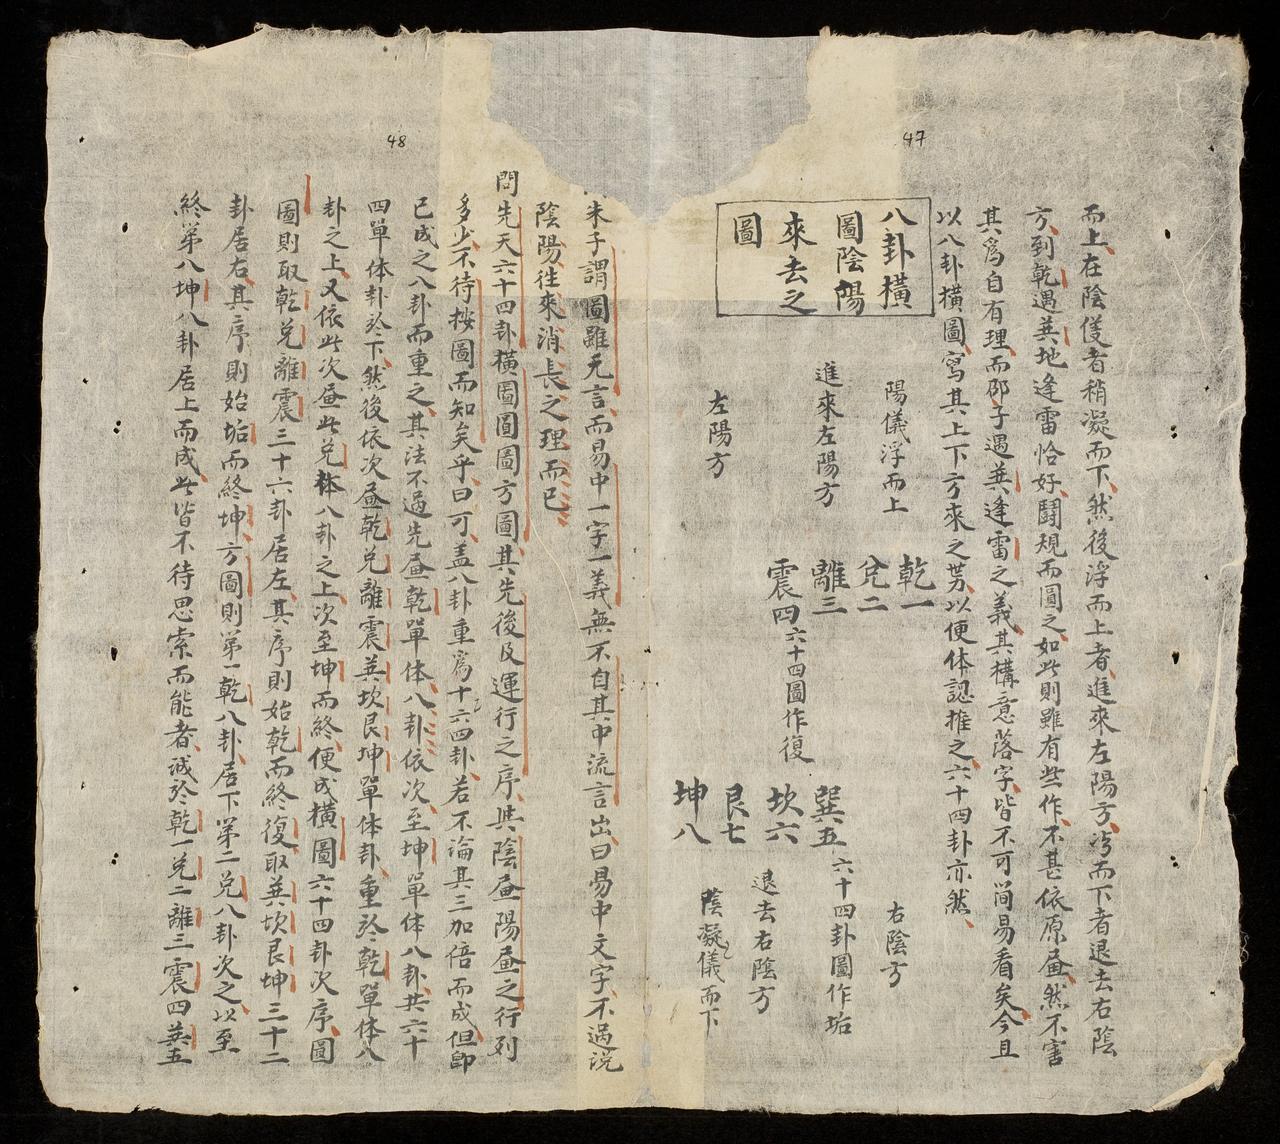 47
而上、在陰儀者稍凝而下、然後浮而上者、進來左陽方、冷而下者退去右陰
方、到乾遇巽地逢雷恰好鬪規而圓之、如此則雖有些作、不甚依原畫、然不害
其爲自有理、而邵子遇巽逢雷之義、其構意落字、皆不可簡易看矣、今且
以八卦橫圖、寫其上下方來之勢、以便体認推之、六十四卦亦然、
八卦橫
圖陰陽
來去之
圖
陽儀浮而上
進來左陽方
左陽方
乾一
兌二
離三
震四 六十四圖作復
巽五 六十四卦圖作姤
坎六
艮七
坤八
右陰方
退去右陰方
陰凝儀而下
48
朱子謂圖雖无言、而易中一字一義無不自其中流言出、曰易中文字、不過說
陰陽往來消長之理而已
問先天六十四卦橫圖圓圖方圖、其先後及運行之序、與陰畫陽畫之行列
多少、不待按圖而知矣乎曰可、盖八卦重爲十六四卦、若不論其三加倍而成、但卽
已成之八卦而重之、其法不過先畫乾單体八卦、依次至坤單体八卦、共六十
四單体卦於下、然後依次畫乾兌離震巽坎艮坤單体卦、重於乾單体八
卦之上、又依此次畫此兌体八卦之上、次至坤而終、便成橫圖六十四卦次序、圓
圖則取乾兌離震三十六卦居左、其序則始乾而終復、取巽坎艮坤三十二
卦居右、其序則始姤而終坤、方圖則第一乾八卦、居下第二兌八卦次之、以至
終第八坤八卦居上而成、此皆不待思索而能者、誠於乾一兌二離三震四巽五